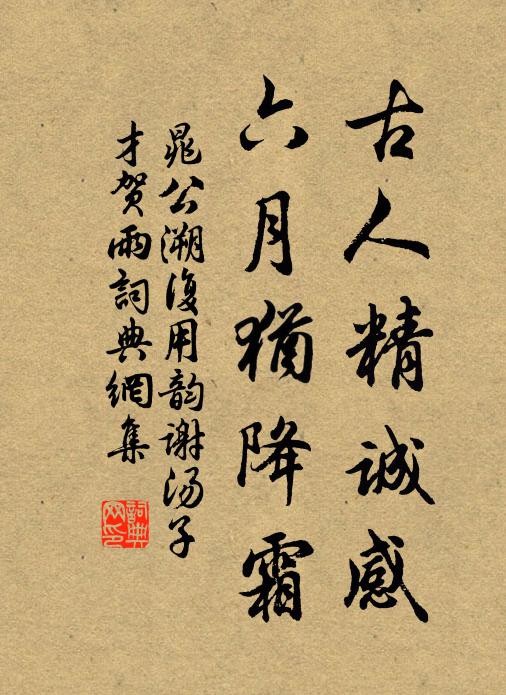 古人精诚感
六月猶降霜
晁公溯復用韵谢汤子
才贺雨詞典網集
詞典网印